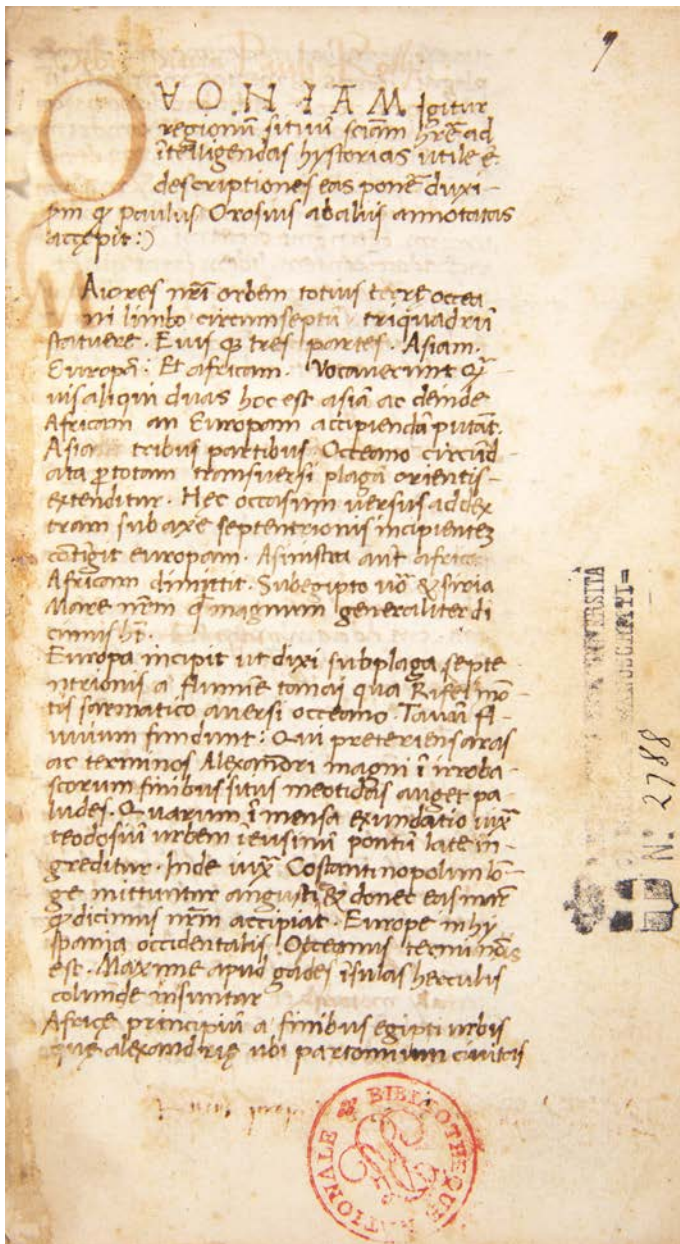 9
O
Igitur
regionũ sitũ sciam hr̃e ad
ĩtelligendas hystorias utile ẽ
descriptiones eas ponẽ duxi-
Paulus Orosius abaliis annotatas
accępit :)
Aiores nr̃i orbem totius terre occea
ni limbo circumseptũ triquadrũ
statuere. Eius qꝫ tres partes. Asiam.
Europã: Et africam. Vocaverunt
uis aliqui duas hoc est asiã ac deinde
Africam an Europam accipiendã putãt.
Asia tribus partibus Occeano circũd
ata ꝑ totam transversi plagã orientis-
extenditur. Hec occasum versus addex
tram sub axe septentrionis incipientez
cõtĩgit europam. Asinistra aut africe
Africam dimittit. Subegipto uõ & siria
Mare nr̃m magnum generaliter di
cimus
Europa incipit ut dixi sub plaga septe
ntrionis a flumĩe tanai qua Rifei mõ
tis sarmatico aversi occeano. Tanaĩ fl-
uvium fundunt: Qui preteriens aras
ac terminos Alexãdri magni ĩ irroba-
scorum finibus situs meotidas auget pa
ludes. Quarum ĩmensa exundatio iux̃
teodosiũ urbem ieusinũ pontũ late in-
greditur. Inde iux̃ Costantinopolim lõ-
ge mittuntur angustię donec eas mar̃
dicimus nr̃m accipiat. Europe in hy
spania occidentalis Occeanus terminas
est. Maxime apud gades ĩsulas herculis
colunde insuntar
Africę principiũ a finibus egipti urbis
quę alexandrię ubi partonnium civitas
BIBLIOTHEQUE NATIONALE
UNIVERSITÀ
MANOSCRITTI=
N: 2788